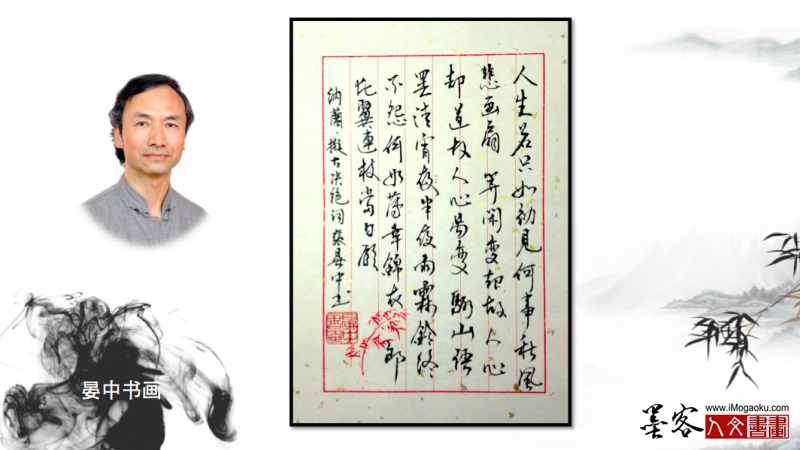 人生若只如初見何事秋风
悲画扇 等闲变却故人心
却道故人心易变 骊山语
罢清宵夜半夜雨霖鈴终
不怨何如薄幸錦衣郎
比翼連枝當日願
納蘭、擬古决绝词 張晏中书
晏中书画
墨客
www.iMogaoku.com
人文書畫